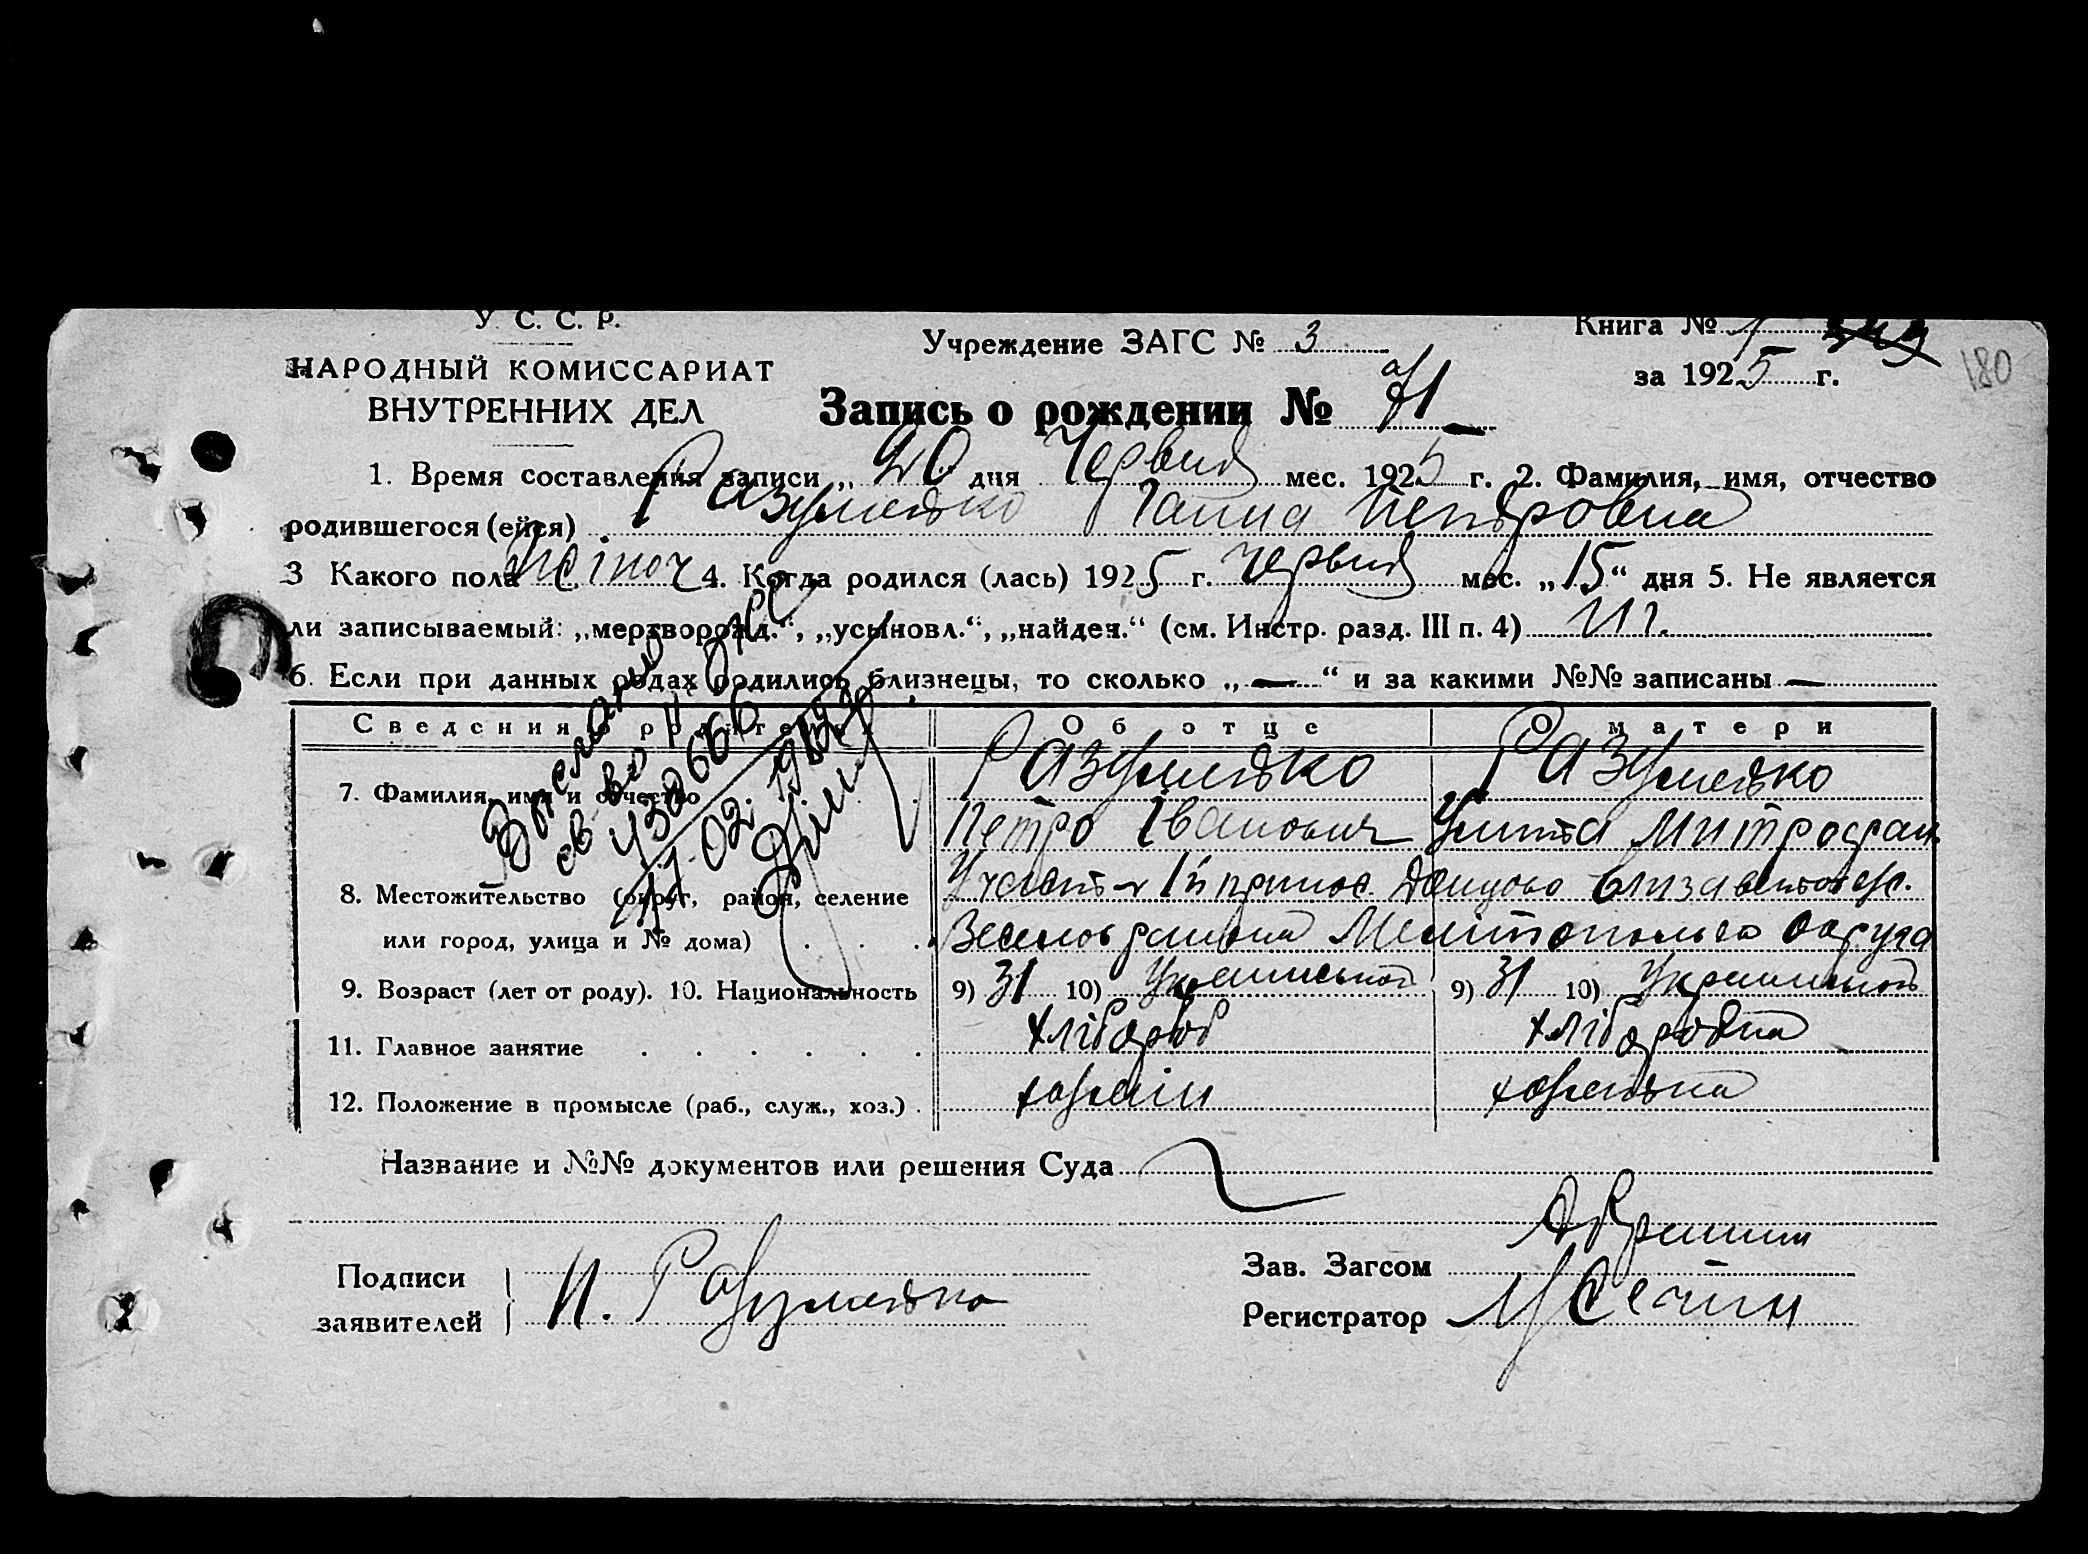 У. С. С. Р.
НАРОДНЫЙ КОМИССАРИАТ
ВНУТРЕННИХ ДЕЛ
Учреждение ЗАГС № 3
Книга № 1
за 1925 г.
180
Запись о рождении № 71
1. Время составления записи „ 20 дня Червня мес. 1925 г. 2. Фамилия, имя, отчество
родившегося (ейся) Разуменко Ганна Петровна
3 Какого пола жіноч 4. Когда родился (лась) 1925 г. червня мес. „15“ дня 5. Не является
ли записываемый: „мертворожд.“, „усыновл.“, „найден.“ (см. Инстр. разд. III п. 4) Ні
6. Если при данных родах родились близнецы, то сколько „—“ и за какими №№ записаны —
Сведения о родителях
Об отце
О матери
7. Фамилия, имя и отчество
Разуменко
Разуменко
Петро Іванович
Митрофан.
8. Местожительство (округ, район, селение
или город, улица и № дома)
Мелитопольск округа
9. Возраст (лет от роду). 10. Национальность
9) 31 10)
9) 31 10)
11. Главное занятие
хлібороб
хліборобка
12. Положение в промысле (раб., служ., хоз.)
хозяїн
хозяйка
Название и №№ документов или решения Суда
Подписи
заявителей
П. Разуменко
Зав. Загсом
Регистратор